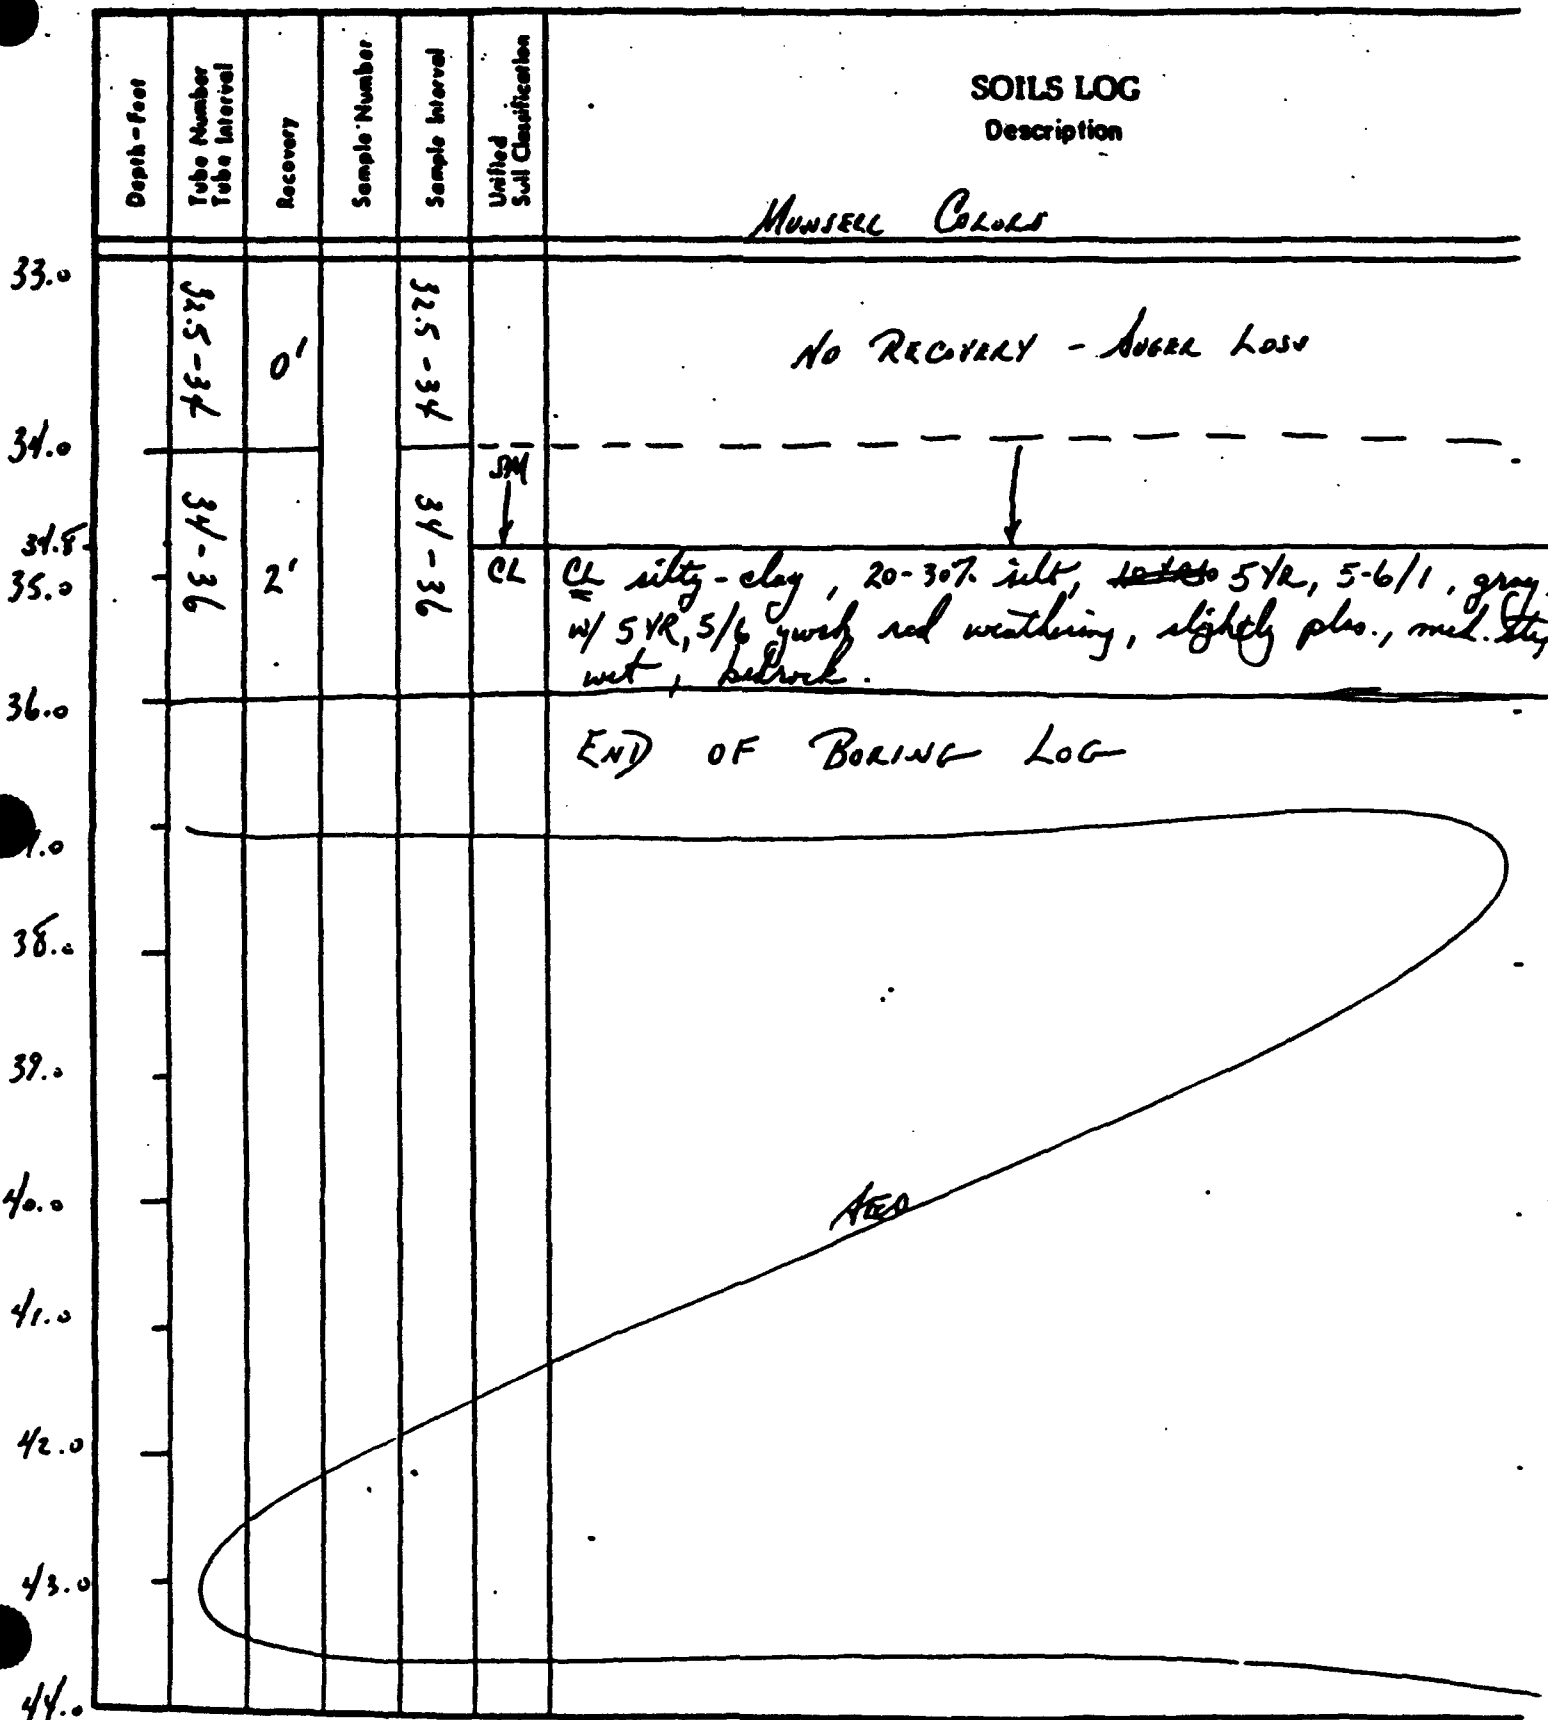 SOILS LOG
Description
Depth-Feet
Tube Number
Tube Interval
Recovery
Sample Number
Sample Interval
Unified
Soil Classification
MUNSELL COLORS
33.0
32.5-34
0'
32.5-34
NO RECOVERY - AUGER LOSS
34.0
SM
34-36
2'
34-36
34.8
35.0
CL
CL silty-clay, 20-30% silt, 5YR, 5-6/1, gray,
w/ 5YR, 5/6 ywsh red weathering, slightly plas., med.
wet, bedrock.
36.0
END OF BORING LOG
7.0
38.0
39.0
40.0
41.0
42.0
43.0
44.0